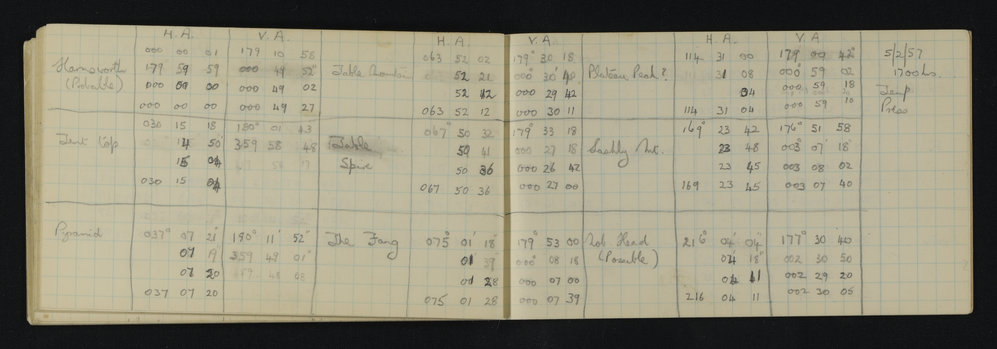 H.A. V.A. H.A. V.A. H.A. V.A.
000 00 01 179 10 58 063 52 02 179° 30 18 114 31 00 179 00 42" 5/2/57
Harmsworth 179 59 59 000 49 52" 52 21 000° 30' Plateau Peak? 31 08 000° 59 02 1700 hs.
(Probable) 000 00 00 000 49 02 52 12 000 29 42 04 000 59 18 Temp
000 00 00 000 49 27 063 52 12 000 30 11 114 31 04 000 59 10 Press
030 15 18 180° 01 43 067° 50 32 179° 33 18 169° 23 42 176° 51 58
Tent 14 50 359 58 48 Table 50 41 000 27 18 23 48 003° 07' 18"
15 04 Spire 50 36 000 26 42 23 45 003 08 02
030 15 04 067 50 36 000 27 00 169 23 45 003 07 40
Pyramid 037° 07 21" 180° 11' 52" The Fang 075° 01' 18" 179° 53 00 Nob. Head 216° 04' 04" 177° 30' 40
07 19 359 49 01" 01 39 000° 08 18 (Possible) 04 18" 002 30 50
07 20 01 28 000 07 00 04 11 002 29 20
037 07 20 075 01 28 000 07 39 216 04 11 002 30 05